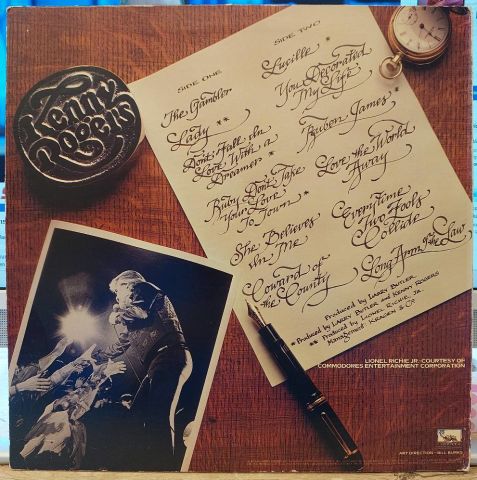 Kenny
Rogers
SIDE ONE
The Gambler
Lady **
Don't Fall In
Love With a
Dreamer *
Ruby Don't Take
Your Love
To Town *
She Believes
In Me
Coward of
the County
SIDE TWO
Lucille *
You Decorated
My Life
Reuben James *
Love the World
Away
Everytime
Two Fools
Collide
Long Arm of the Law
Produced by LARRY BUTLER
* Produced by LARRY BUTLER and KENNY ROGERS
** Produced by LIONEL RICHIE, JR.
Management: KRAGEN & CO.
LIONEL RICHIE JR.: COURTESY OF
COMMODORES ENTERTAINMENT CORPORATION
ART DIRECTION - BILL BURKS